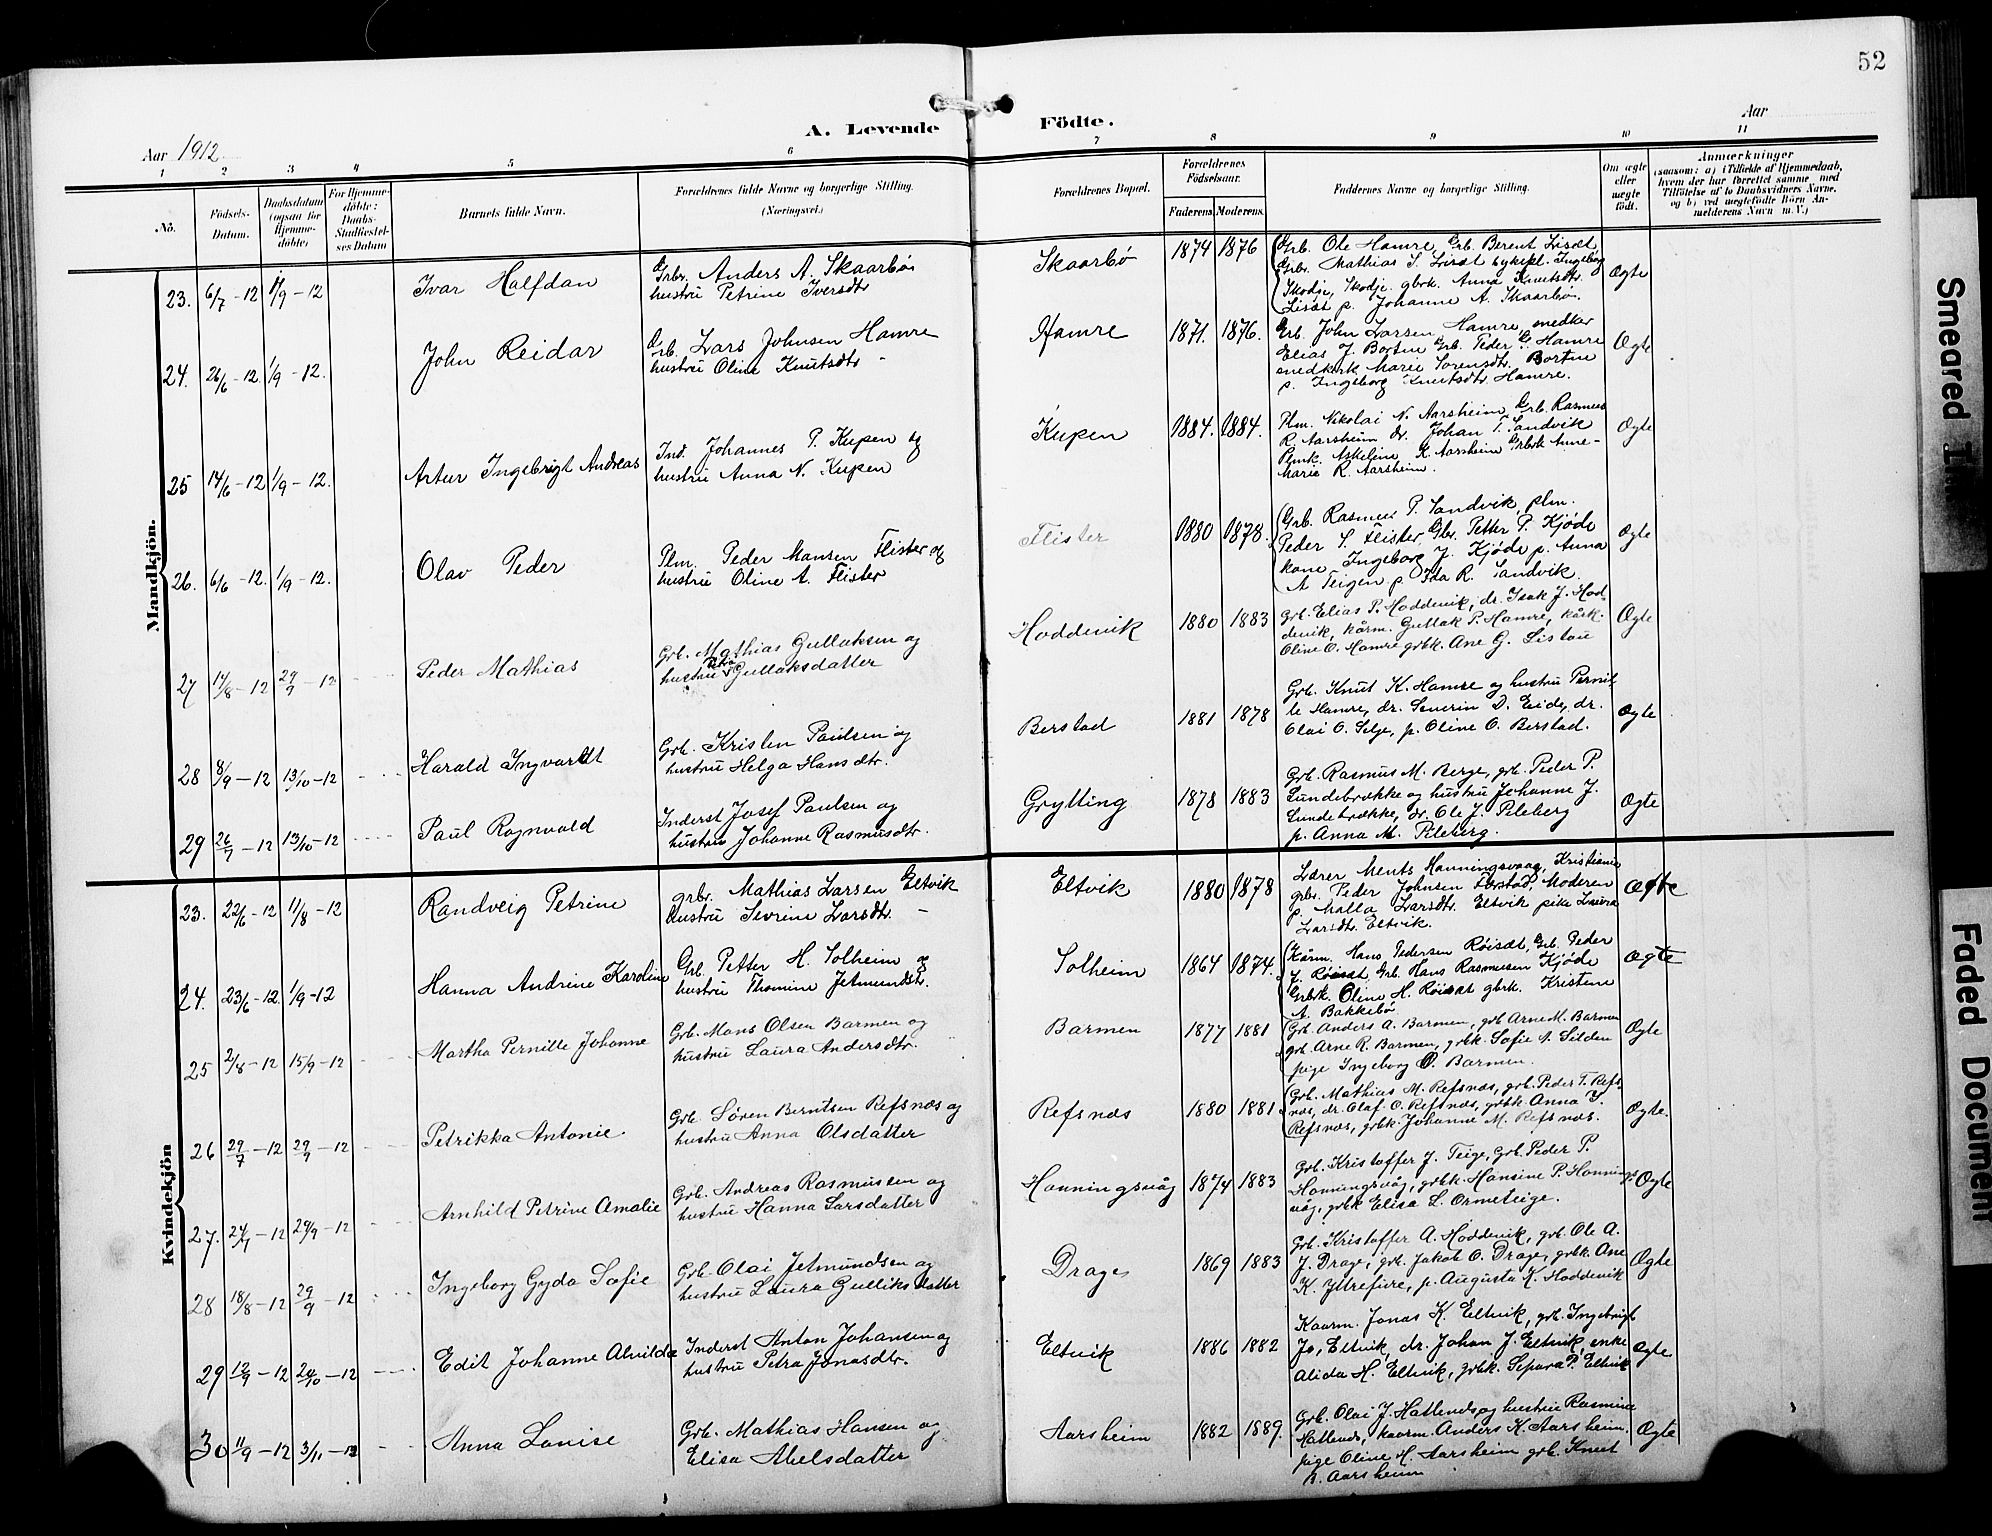 52
A. Levende Födte.
Aar 1912
Aar
1 2 3 4 5 6 7 8 9 10 11
No.
Födsels-Datum.
Daabsdatum (ogsaa for Hjemme-döbte)
For Hjemme-döbte: Daabs-Stadfæstel-ses Datum
Barnets fulde Navn.
Forældrenes fulde Navne og borgerlige Stilling.
(Næringsvei.)
Forældrenes Bopæl.
Forældrenes Födselsaar.
Faderens. Moderens.
Faddernes Navne og borgerlige Stilling.
Om ægte eller uægte födt.
Anmærkninger
(saasom: a) i Tilfælde af Hjemmedaab,
hvem der har forrettet samme med
Tilföielse af to Daabsvidners Navne,
og b) ved uægtefödte Börn An-
melderens Navn m. V.)
Mandkjön.
23. 6/7-12 1/9-12 Ivar Halfdan
Grbr. Anders A. Skaarbø
hustru Petrine Iversdtr
Skaarbø 1874 1876
Grb. Ole Hamre, Grb. Berent Lisæt
Grbr. Mathias S. Lisæt sykepl. Ingeborg
Skodje, Skodje. gbrk. Anna Knutsdtr.
Lisæt p. Johanne A. Skaarbø.
Ægte
24. 26/6-12 1/9-12. John Reidar
Grb. Lars Johnsen Hamre
hustru Oline Knutsdtr -
Hamre 1871. 1876.
Grb. John Larsen Hamre, snedker
Elias J. Bortne Grb. Peder G. Hamre
snedkerk Marie Sorensdtr. Bortne
p. Ingeborg Knutsdtr. Hamre.
Ægte
25 14/6-12 1/9-12. Artur Ingebrigt Andreas
Ind. Johannes P. Kupen og
hustru Anna N. Kupen
Kupen 1884. 1884.
Plm. Nikolai N. Aarsheim, Grb. Rasmus
R. Aarsheim dr. Johan T. Sandvik
Plmk. Askeline K. Aarsheim Grbrk Anne-
Marie R. Aarsheim.
Ægte
26. 6/6-12. 1/9-12. Olav Peder
Plm. Peder Mansen Flister og
hustru Oline A. Flister
Flister 1880 1878.
Grb. Rasmus P. Sandvik, plm.
Peder S. Flister, Gbr. Petter P. Kjøde
kone Ingeborg J. Kjøde p. Anna
A Teigen p. Ida R. Sandvik.
Ægte
27 14/8-12 29/9-12 Peder Mathias
Grb. Mathias Gullaksen og
hustru Petra Gullaksdatter
Hoddevik 1880 1883
Grb. Elias P. Hoddevik, dr. Isak J. Hod-
devik, kårm. Gullak P. Hamre, kårk.
Oline O. Hamre grbk. Ane G. Listau
Ægte
28 8/9-12 13/10-12 Harald Ingvardt
Grb. Kristen Paulsen og
hustru Helga Hansdtr.
Berstad 1881 1878
Grb. Knut K. Hamre og hustru Pernil-
le Hamre, dr. Severin D. Eide, dr.
Olai O. Selje, p. Oline O. Berstad.
Ægte
29 26/7-12 13/10-12 Paul Ragnvald
Inderst Josef Paulsen og
hustru Johanne Rasmusdtr.
Grytting 1878 1883
Grb. Rasmus M. Berge, grb. Peder P.
Sundebrække og hustru Johanne J.
Sundebrække, dr. Ole J. Pileberg
p. Anna M. Pileberg.
Ægte
Kvindekjön
23. 22/6-12 11/8-12 Randveig Petrine
grbr. Mathias Larsen Eltvik
Hustru Sevrine Larsdtr. -
Eltvik 1880 1878
Lærer Ments Hanningsvaag, Kristiania
grbr. Peder Johnsen Furstad, Moderen
p. Malla Larsdtr. Eltvik pike Laura
Larsdtr. Eltvik.
Ægte
24. 23/6-12. 1/9-12 Hanna Andrine Karoline
Grb. Petter H. Solheim og
hustru Thomine Jetmundsdtr.
Solheim 1864 1874.
Kårm. Hans Pedersen Røisæt, Grb. Peder
J. Røisæt Grb. Hans Rasmussen Kjøde
Grbrk. Oline H. Røisæt gbrk. Kristene
A. Bakkebø
Ægte
25 2/8-12 15/9-12 Martha Pernille Johanne
Grb. Mons Olsen Barmen og
hustru Laura Andersdtr.
Barmen 1877 1881
Grb. Anders A. Barmen, grb Arne M. Barmen
grb. Arne R. Barmen, grbk. Sofie A. Silden
pige Ingeborg O. Barmen.
Ægte
26 29/7-12 29/9-12 Petrikka Antonie
Grb. Søren Berntsen Refsnæs og
hustru Anna Olsdatter
Refsnæs 1880 1881
Grb. Mathias M. Refsnæs, grb. Peder T. Refs-
næs, dr. Olaf O. Refsnæs, grbk Anna J.
Refsnæs, grbk. Johanne M. Refsnæs.
Ægte.
27. 24/7-12 29/9-12 Arnhild Petrine Amalie
Grb. Andreas Rasmussen og
hustru Hanna Larsdatter
Honningsvåg 1874 1883
Grb. Kristoffer J. Teige, grb. Peder P.
Honningsvåg, grbk. Hansine P. Honnings-
våg, grbk Elisa L. Ormeteige.
Ægte
28 18/8-12 29/9-12 Ingeborg Gyda Sofie
Grb. Olai Jetmundsen og
hustru Laura Gulliksdatter
Drage 1869 1883
Grb. Kristoffer A. Hoddevik, grb. Ole A.
J. Drage, grb. Jakob O. Drage, grbk. Ane
K. Ytrefure, p. Augusta K. Hoddevik
Ægte
29 12/9-12 20/10-12 Edit Johanne Alvilde
Inderst Anton Johansen og
hustru Petra Jonasdtr.
Eltvik 1886 1882
Kaarm. Jonas K. Eltvik, grb. Ingebrigt
Jo. Eltvik, dr. Johan J. Eltvik, enke
Alida H. Eltvik, grbk. Sepora P. Eltvik
Ægte
30 11/9-12 3/11-12 Anna Lovise
Grb. Mathias Hansen og
Elisa Abelsdatter
Aarsheim 1882 1889.
Grb. Olai J. Hatlenes og hustru Rasmine
Hatlenes, kaarm. Anders K. Aarsheim,
pige Oline H. Aarsheim grb. Knut
A. Aarsheim
Ægte
Smeared
Faded Document